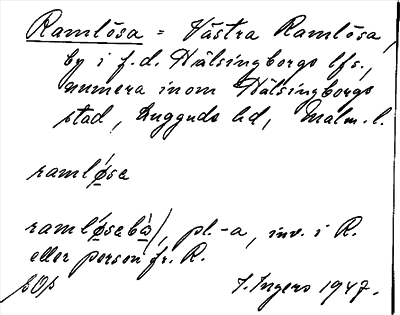 Ramlösa = Västra Ramlösa,
by i f.d. Hälsingborgs lfs.,
numera inom Hälsingborgs
stad, Luggude hd, Malm. l.
ramlǿsa
ramlǿsabà), pl. -a, inv. i R.
eller person fr. R.
SOS I. Ingers 1947.